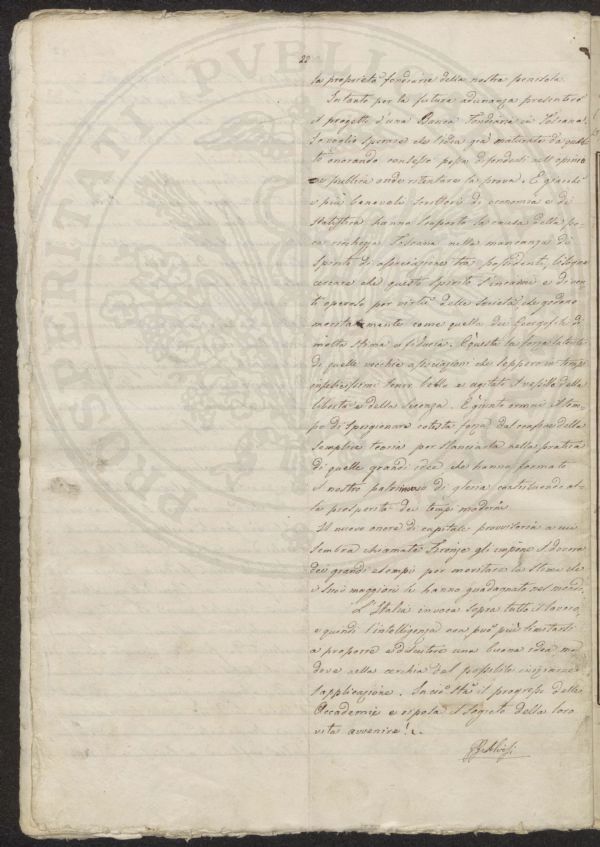 22
PROSPERITATI PVBLI
la proprietà fondiaria della nostra penisola.
Intanto per la futura adunanza presenterò
il progetto d'una Banca Fondiaria in Toscana.
Io voglio sperare che l'idea già maturata da
onorando consesso possa difendersi nell'opinio
ne pubblica onde ritentare la prova. E giacchè
i più benevoli scrittori di economia e di
statistica hanno la causa della po
ca ricchezza Toscana nella mancanza di
spirito di associazione tra possidenti, bisogna
cercare che questo spirito s'incarni e diven
ti operoso per virtù delle società che godono
meritatamente come quella dei Georgofili di
molta stima e fiducia. È questa la forza latente
di quelle vecchie associazioni che seppero in tempi
infelicissimi tener alto e agitato il vessillo della
libertà e della Scienza. È giunto ormai il tem-
po di sprigionare cotesta forza dal confine della
semplice teoria per slanciarla nella pratica
di quelle grandi idee che hanno formato
il nostro patrimonio di gloria contribuendo al-
la prosperità dei tempi moderni.
Il nuovo onore di capitale provvisoria a cui
sembra chiamata Firenze gli impone il dovere
dei grandi esempi per meritare la stima che
i suoi maggiori le hanno guadagnato nel mondo.
L'Italia invoca sopra tutto il lavoro,
e quindi l'intelligenza non può più limitarsi
a proporre e discutere una buona idea ma
deve nella cerchia del possibile
l'applicazione. In ciò sta il progresso delle
Accademie e riposa il segreto della loro
vita avvenire!